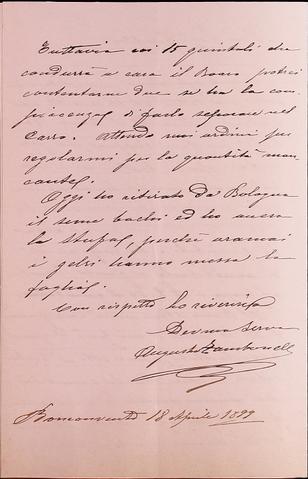 Tuttavia coi 15 quintali che
condurrà a casa il Boaro potrei
contentarne due se ha la com-
piacenza di farlo separare nel
carro. Attendo suoi ordini per
regolarmi per la quantità man-
cante.
Oggi ho ritirato da Bologna
il seme bachi ed ho acceso
la stufa, perchè oramai
i gelsi hanno messa la
foglia.
Con rispetto la riverisco
Devmo Servo
Augusto Zambonelli
Benvenuto 18 Aprile 1899